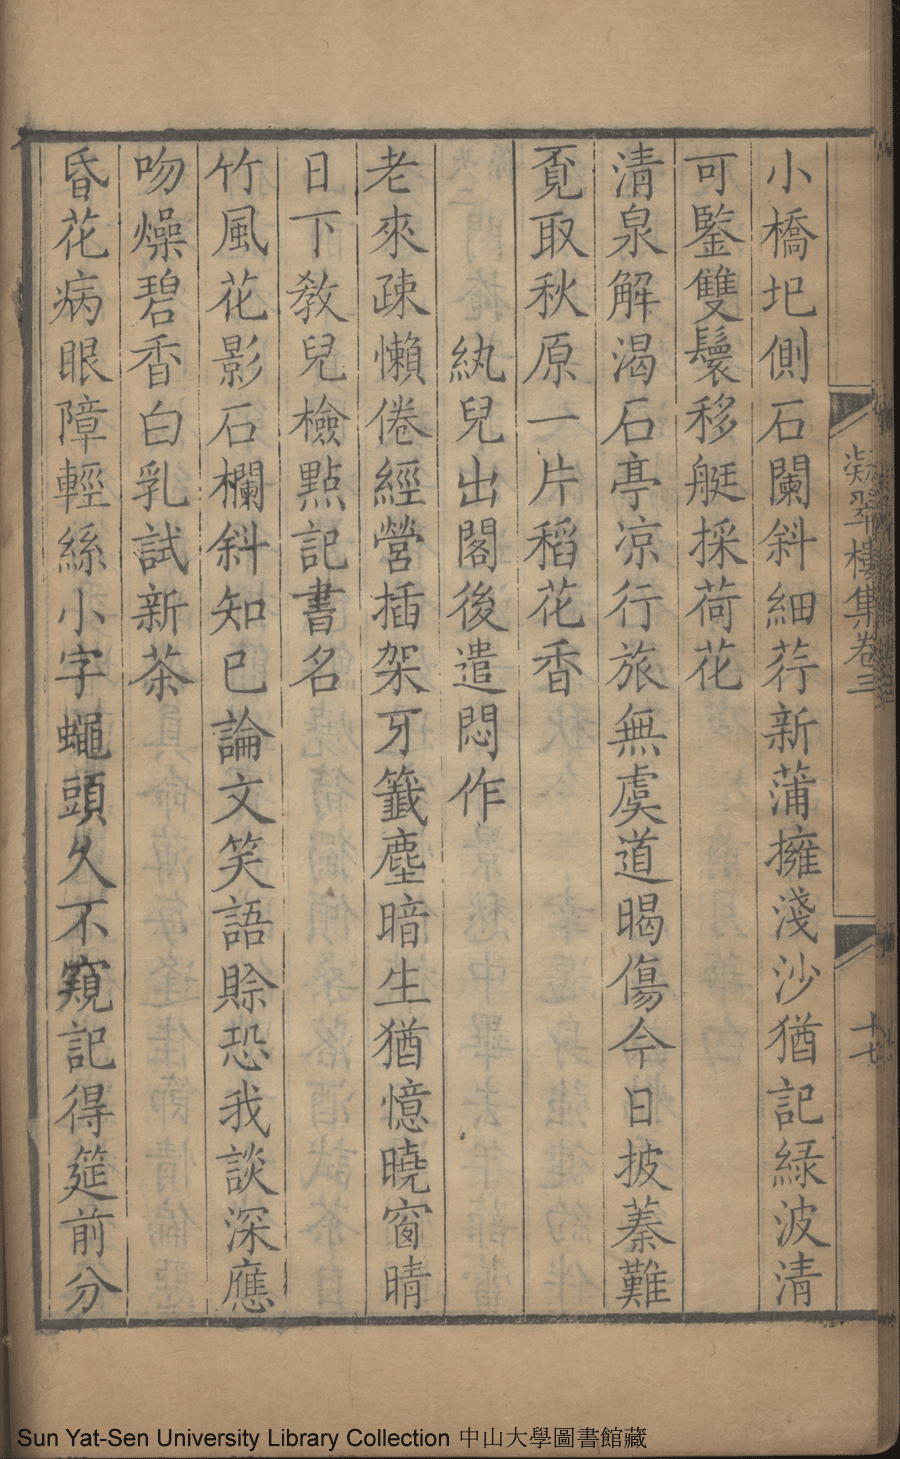 凝翠樓集卷三
十七
小橋圯側石闌斜細荇新蒲擁淺沙猶記緑波清
可鑒雙鬟移艇採荷花
清泉解渴石亭凉行旅無虞道暍傷今日披蓁難
覔取秋原一片稻花香
紈兒出閣後遣悶作
老來疎懶倦經營插架牙籤塵暗生猶憶曉窗晴
日下敎兒檢點記書名
竹風花影石欄斜知已論文笑語賒恐我談深應
吻燥碧香白乳試新茶
昏花病眼障輕絲小字蠅頭久不窺記得筵前分
Sun Yat-Sen University Library Collection 中山大學圖書館藏